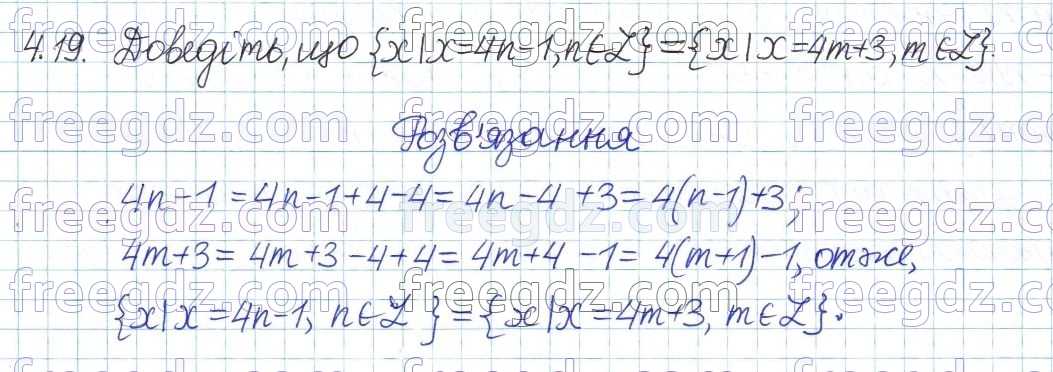 4.19. Доведіть, що {x | x=4n-1, n∈Z} = {x | x=4m+3, m∈Z}.
Розв'язання
4n-1 = 4n-1+4-4 = 4n-4+3 = 4(n-1)+3;
4m+3 = 4m+3-4+4 = 4m+4-1 = 4(m+1)-1, отже,
{x | x=4n-1, n∈Z} = {x | x=4m+3, m∈Z}.
freegdz.com freegdz.com freegdz.com
freegdz.com freegdz.com freegdz.com
freegdz.com freegdz.com freegdz.com
freegdz.com freegdz.com freegdz.com
freegdz.com freegdz.com freegdz.com